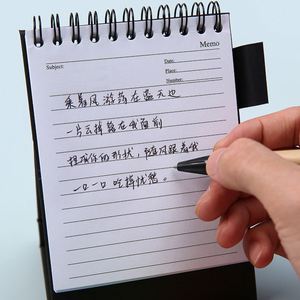 Memo
Subject:
Date:
Place:
Number:
乘着风游荡在蓝天边
一片云掉落在我面前
捏成你的形状，随风跟着我
一口一口吃掉忧愁。